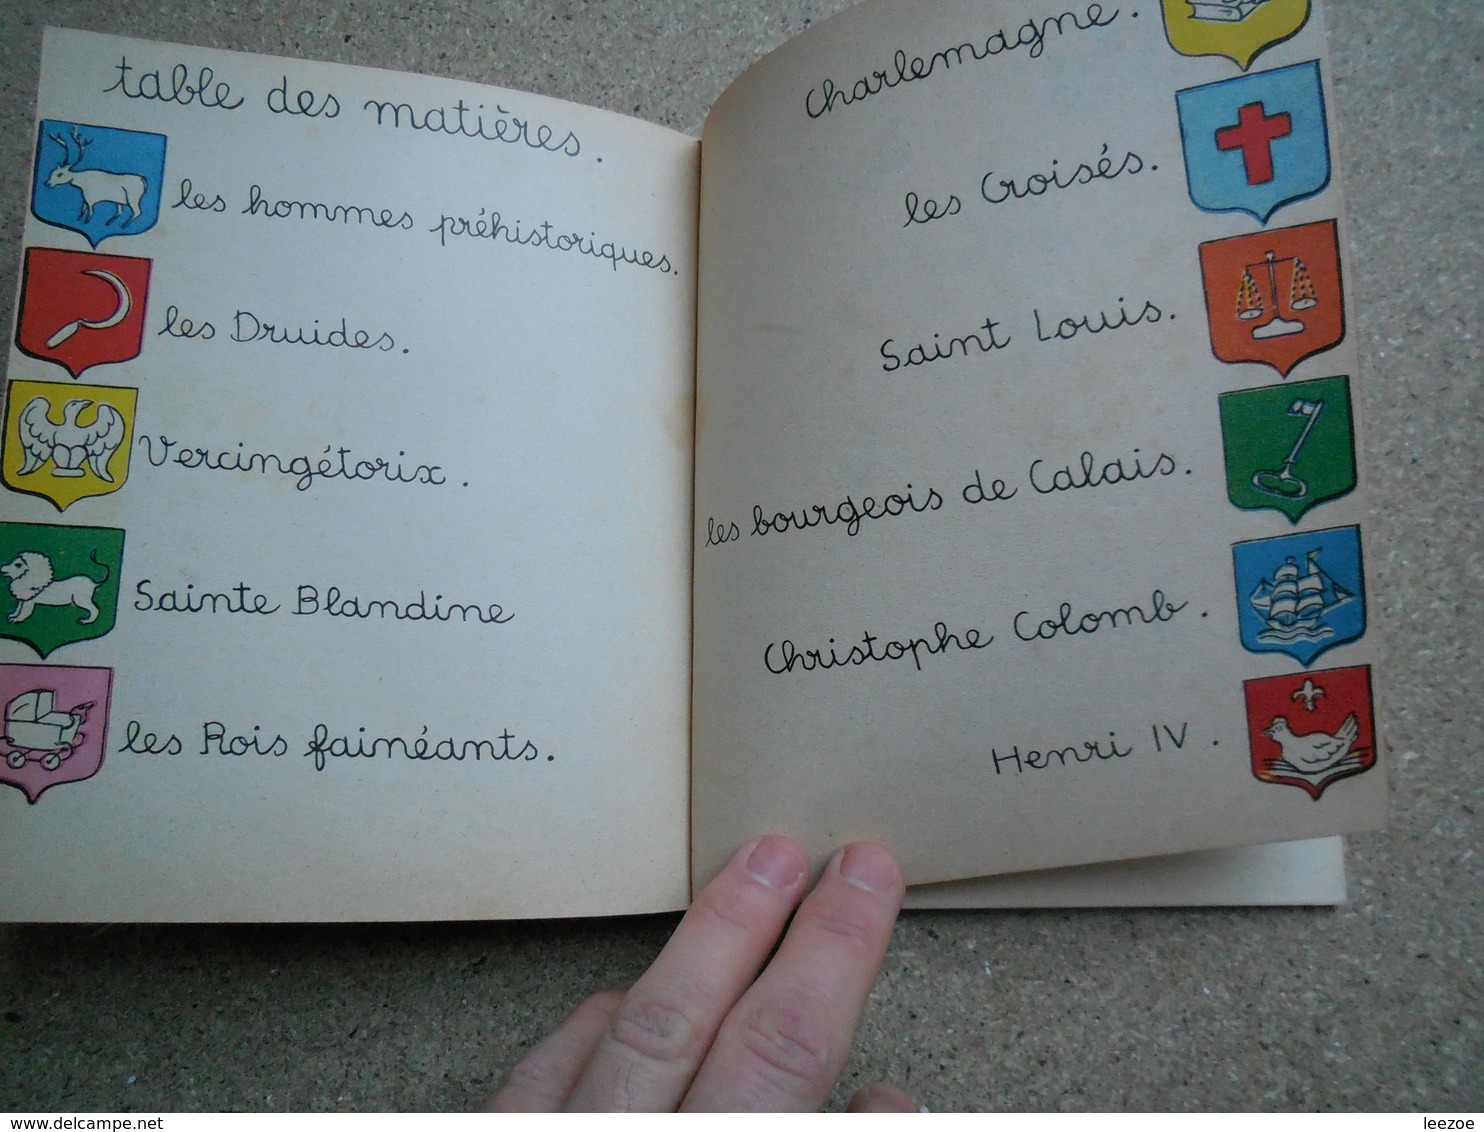 table des matières.
les hommes préhistoriques.
les Druides.
Vercingétorix.
Sainte Blandine
les Rois fainéants.
Charlemagne.
les Croisés.
Saint Louis.
les bourgeois de Calais.
Christophe Colomb.
Henri IV.
www.delcampe.net
leezoe